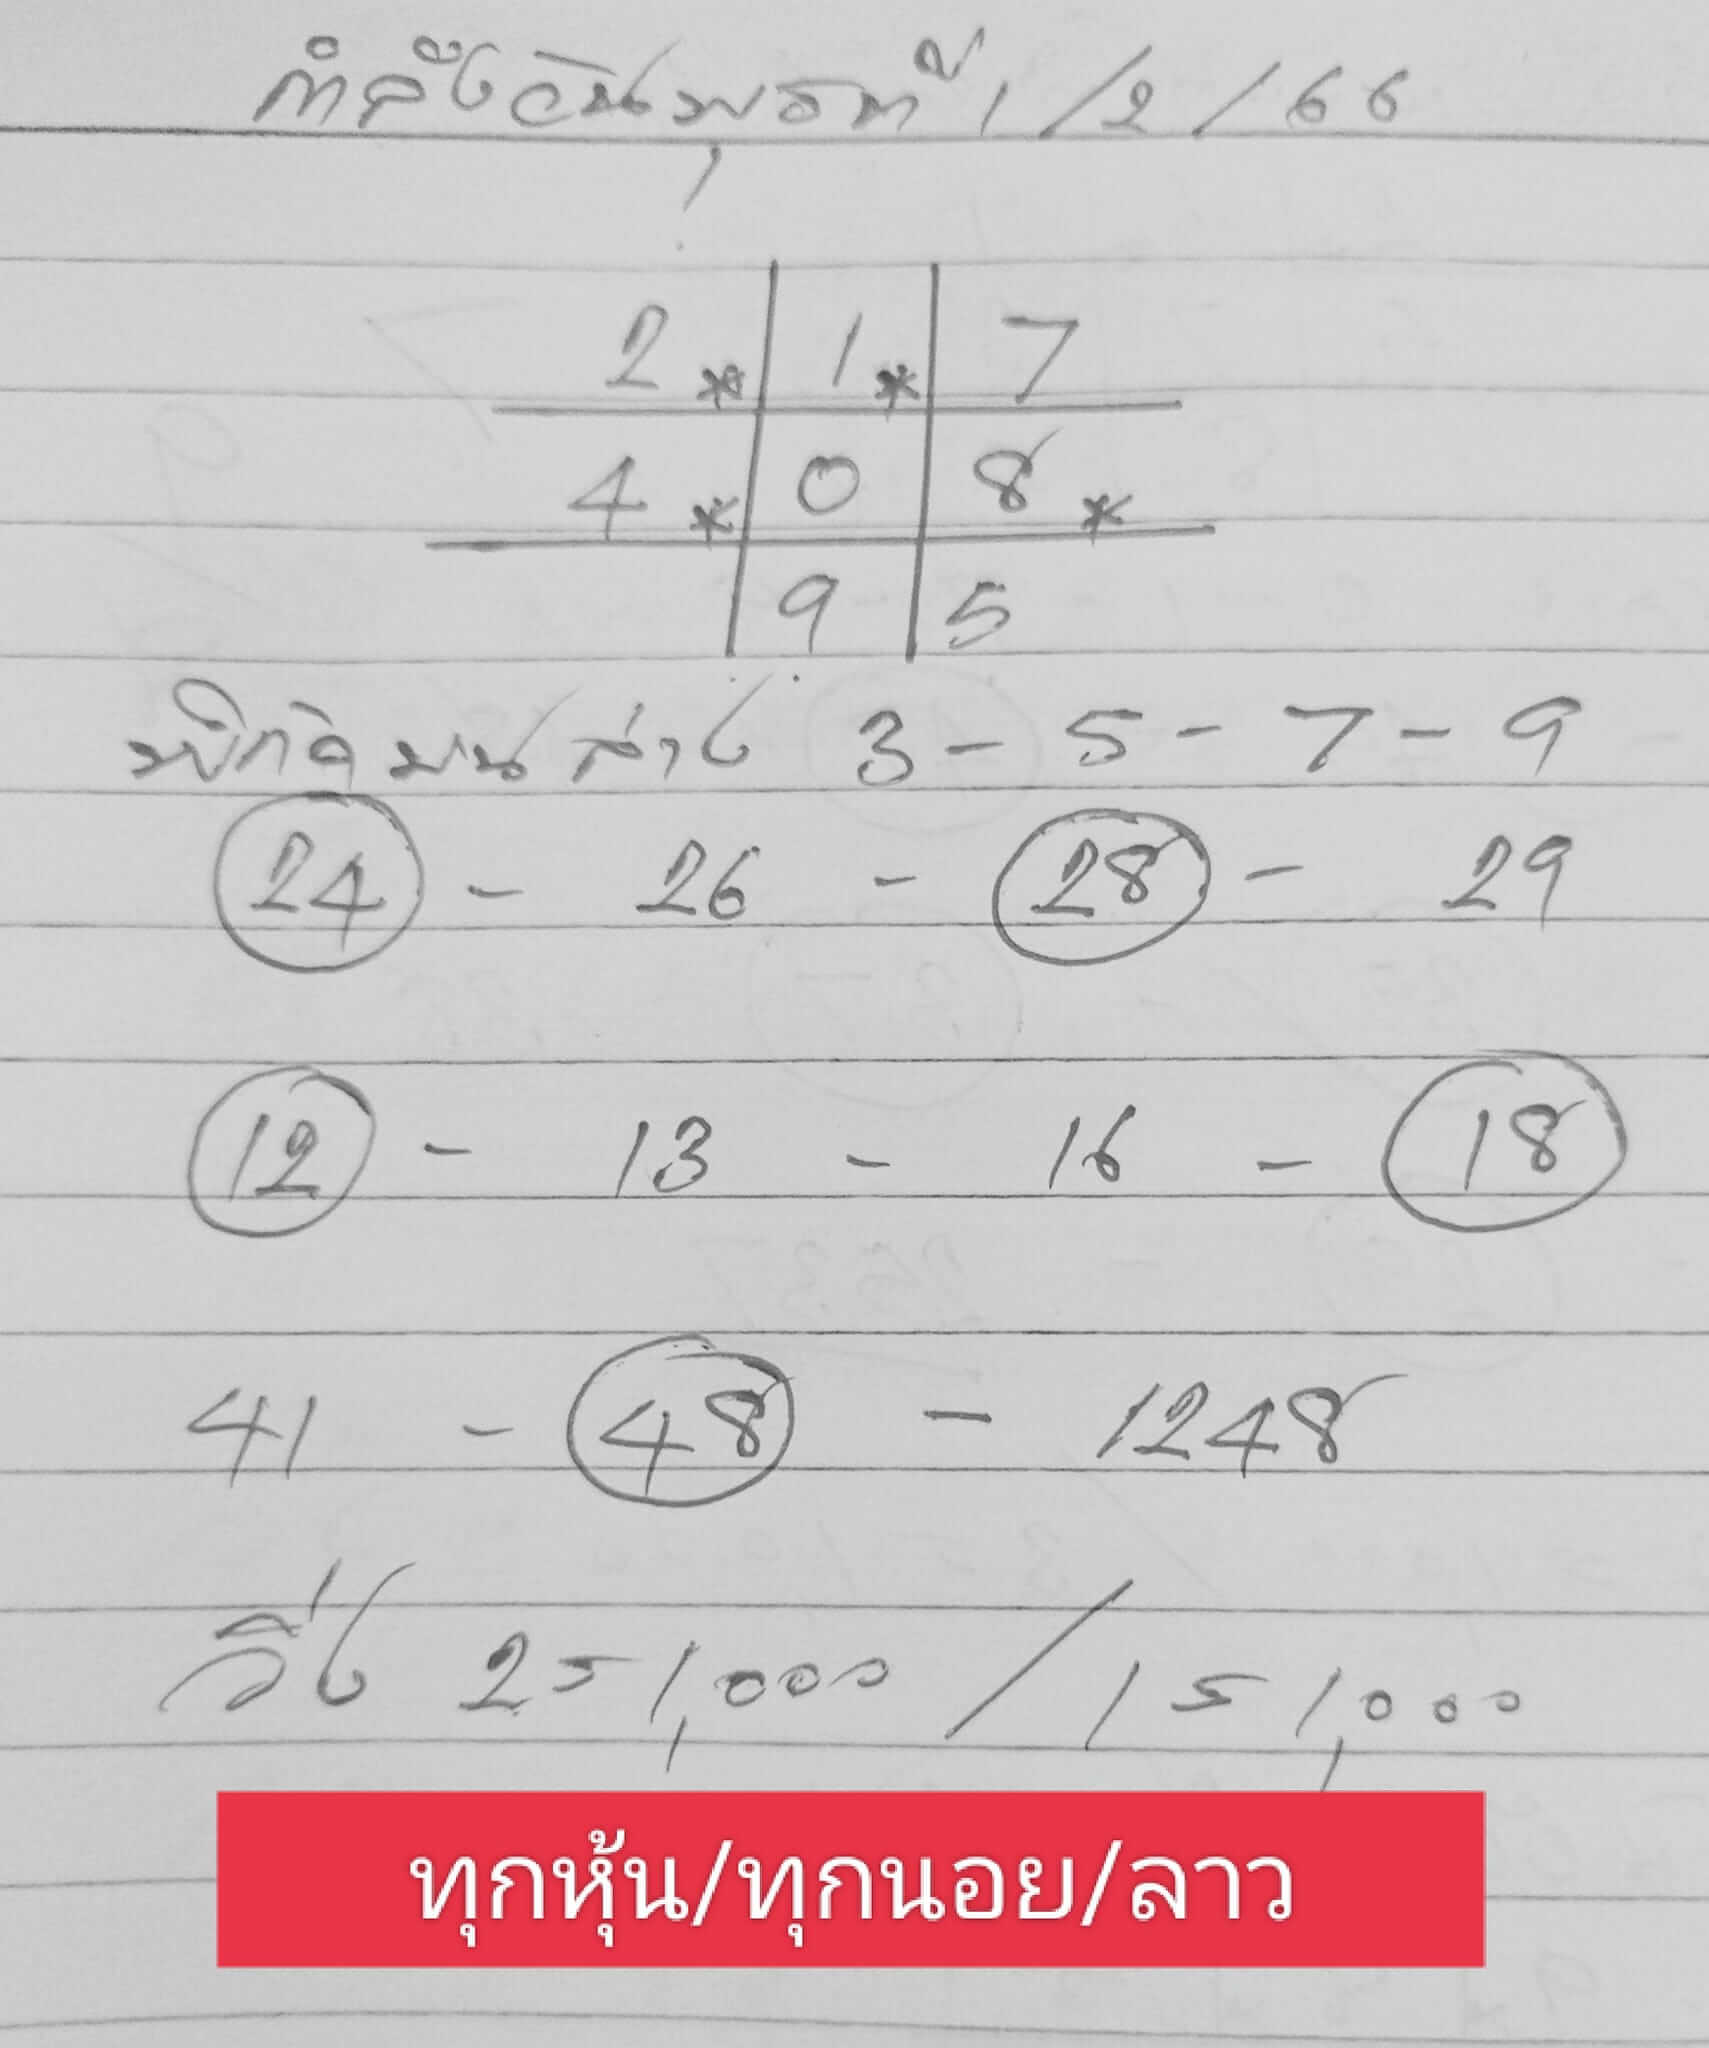 กำลังวันพุธที่ 1/2/66
2* 1* 7
4* 0 8*
9 5
พิกัดบนล่าง 3 - 5 - 7 - 9
24 - 26 - 28 - 29
12 - 13 - 16 - 18
41 - 48 - 1248
วิ่ง 2=1,000 / 1=1,000
ทุกหุ้น/ทุกนอย/ลาว